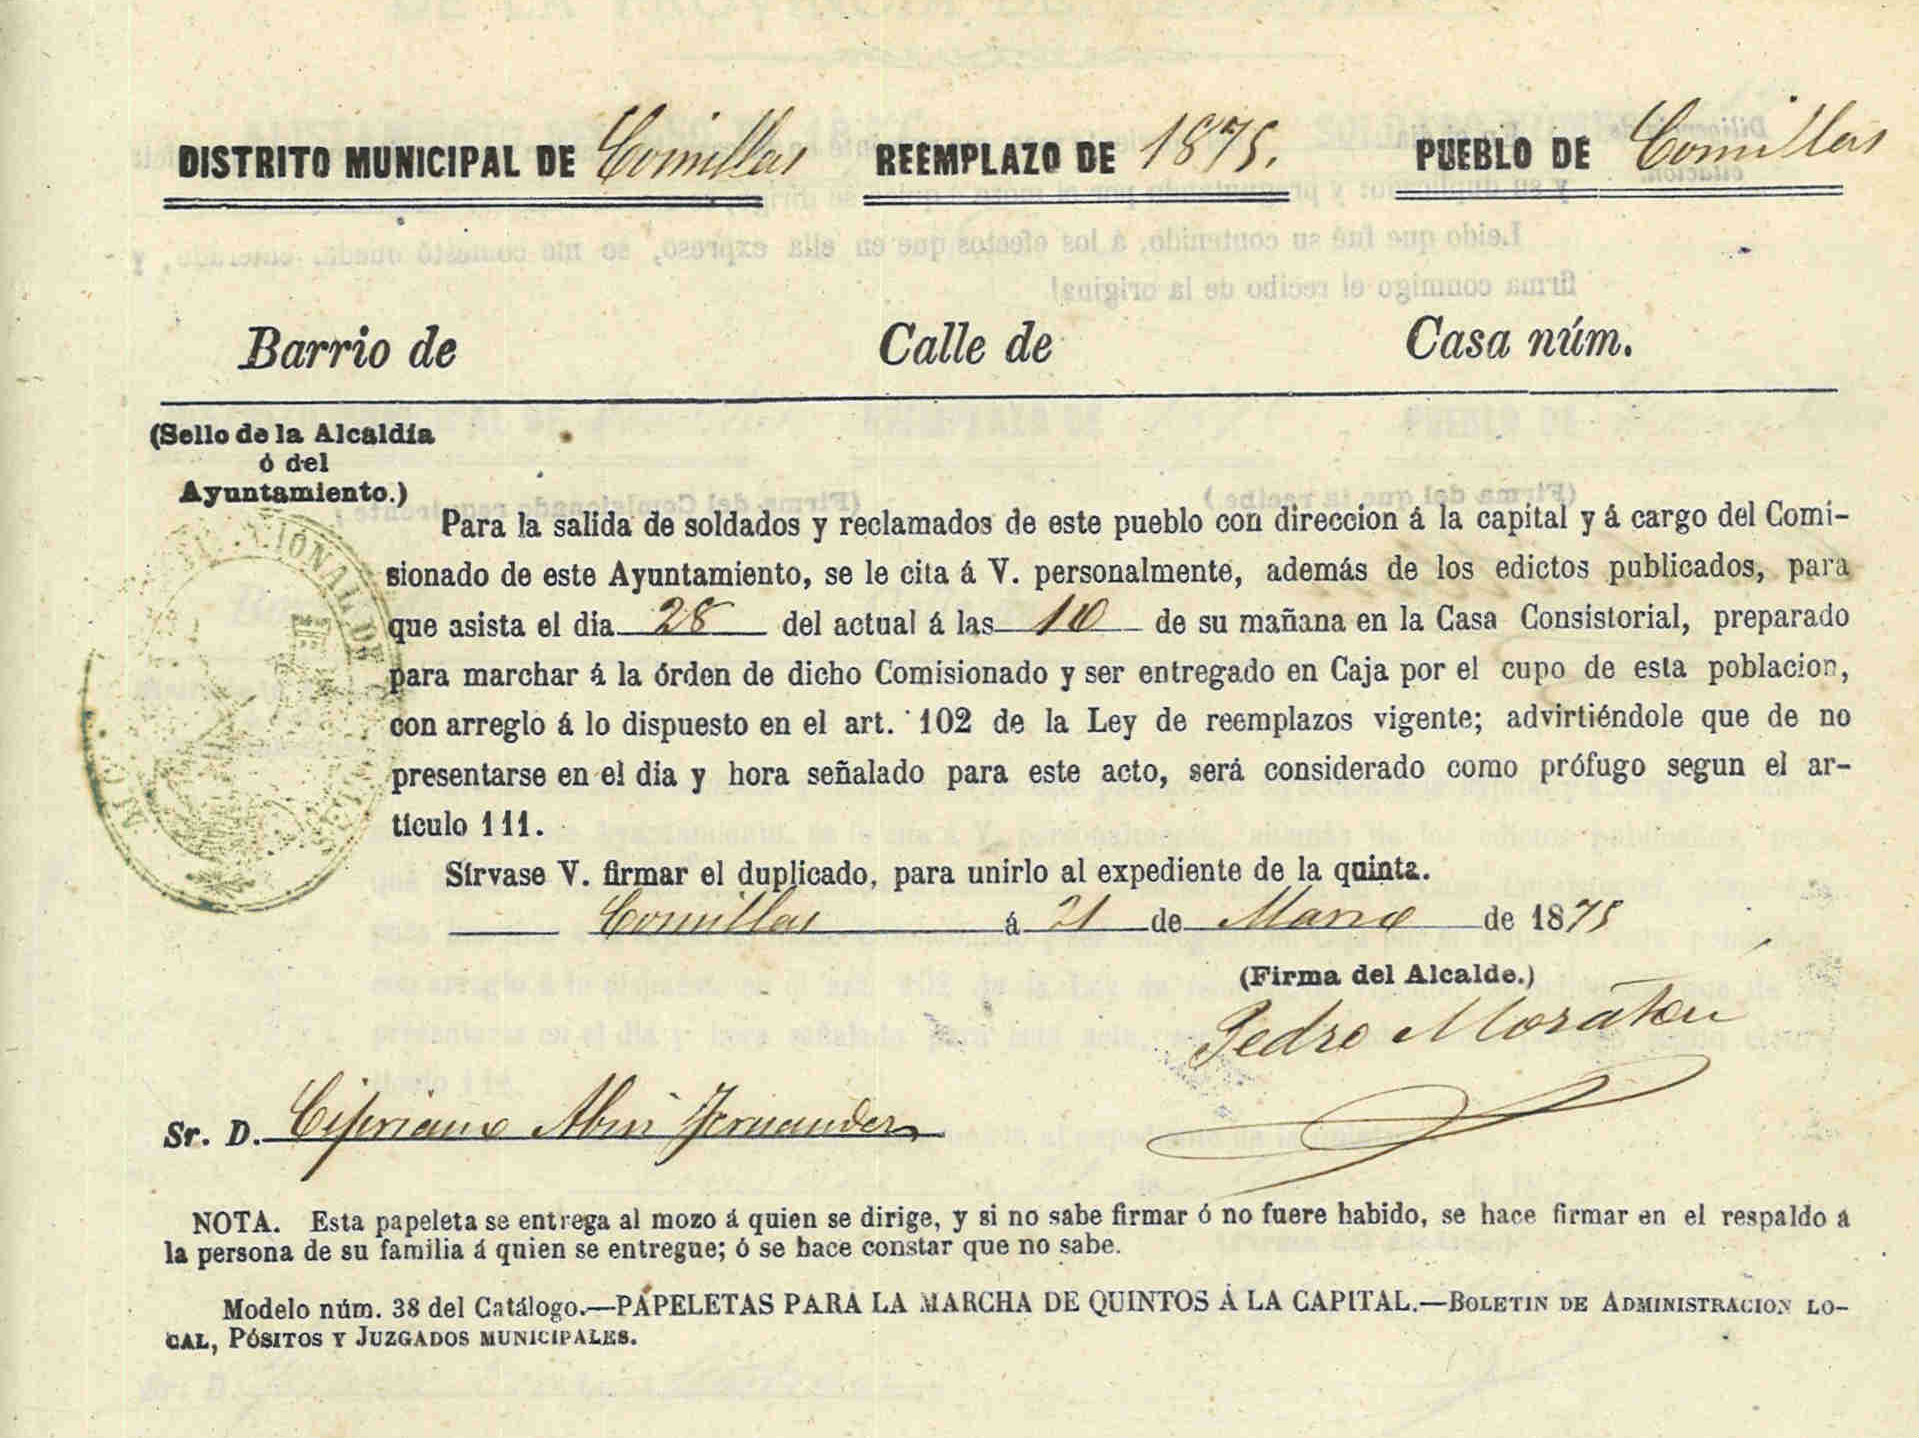 DISTRITO MUNICIPAL DE Comillas REEMPLAZO DE 1875. PUEBLO DE Comillas
Barrio de Calle de Casa núm.
(Sello de la Alcaldía
ó del
Ayuntamiento.)
Para la salida de soldados y reclamados de este pueblo con direccion á la capital y á cargo del Comi-
sionado de este Ayuntamiento, se le cita á V. personalmente, además de los edictos publicados, para
que asista el dia 28 del actual á las 10 de su mañana en la Casa Consistorial, preparado
para marchar á la órden de dicho Comisionado y ser entregado en Caja por el cupo de esta poblacion,
con arreglo á lo dispuesto en el art. 102 de la Ley de reemplazos vigente; advirtiéndole que de no
presentarse en el dia y hora señalado para este acto, será considerado como prófugo segun el ar-
tículo 111.
Sírvase V. firmar el duplicado, para unirlo al expediente de la quinta.
Comillas á 21 de Marzo de 1875
(Firma del Alcalde.)
Pedro Moratou
Sr. D. Cipriano Fernandez
NOTA. Esta papeleta se entrega al mozo á quien se dirige, y si no sabe firmar ó no fuere habido, se hace firmar en el respaldo á
la persona de su familia á quien se entregue; ó se hace constar que no sabe.
Modelo núm. 38 del Catálogo.—PAPELETAS PARA LA MARCHA DE QUINTOS Á LA CAPITAL.—BOLETIN DE ADMINISTRACION LO-
CAL, PÓSITOS Y JUZGADOS MUNICIPALES.